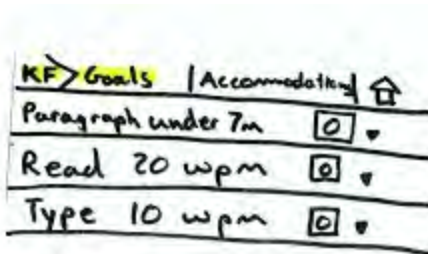 KF > Goals | Accommodations
Paragraph under 7m 0
Read 20 wpm 0
Type 10 wpm 0